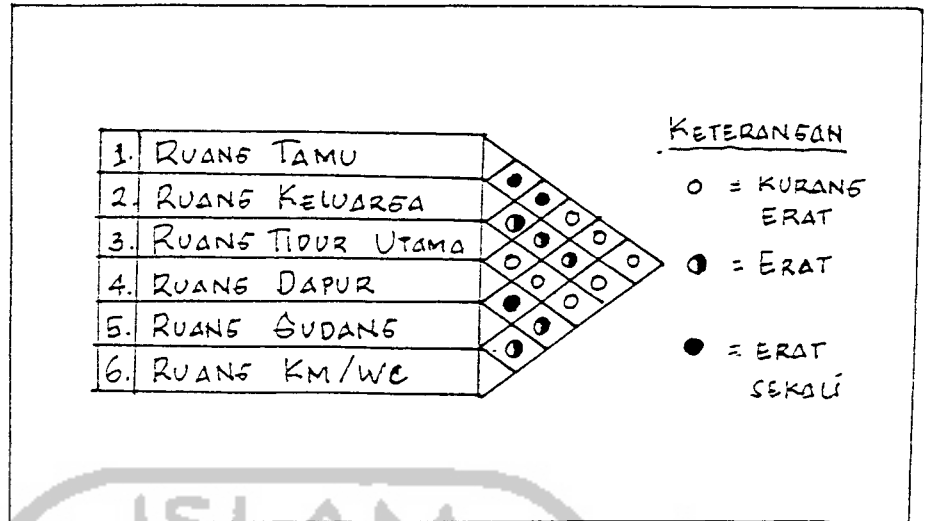 1. RUANG TAMU
2. RUANG KELUARGA
3. RUANG TIDUR UTAMA
4. RUANG DAPUR
5. RUANG GUDANG
6. RUANG KM/WC
KETERANGAN
○ = KURANG
ERAT
◑ = ERAT
● = ERAT
SEKALI
ISLAM